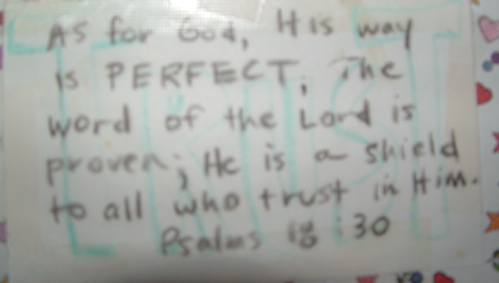 As for God, His way
is PERFECT; The
word of the Lord is
proven; He is a shield
to all who trust in Him.
Psalms 18:30